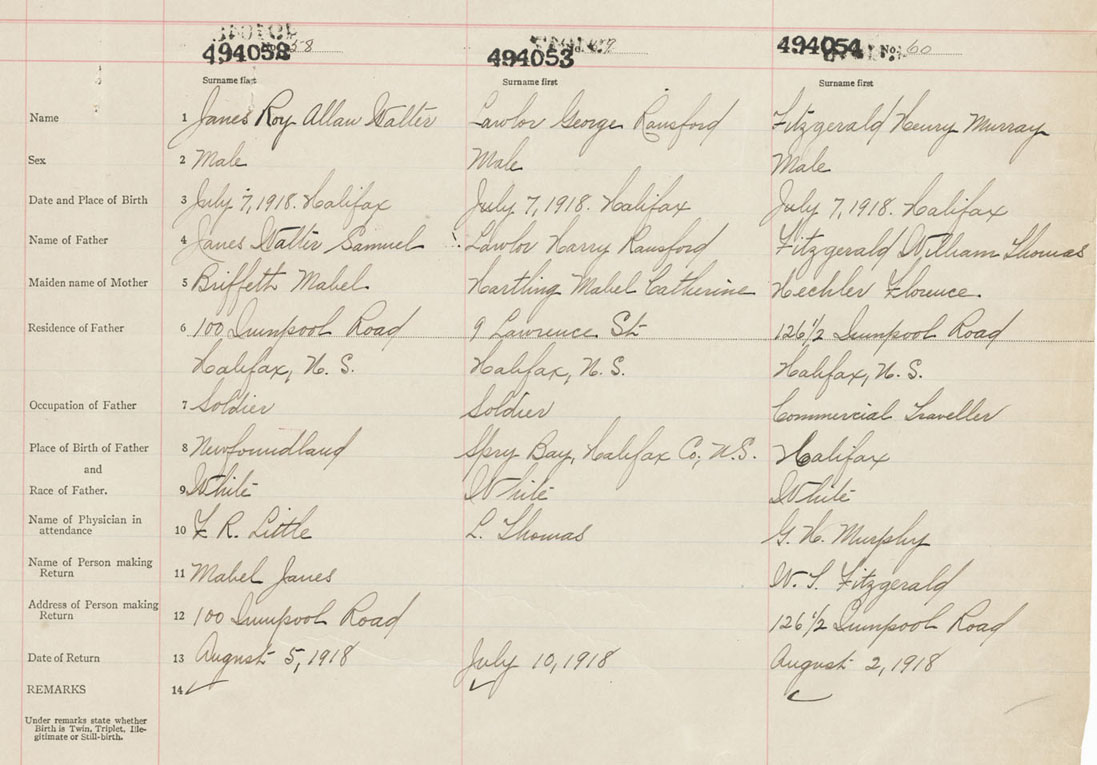 494052 58 494053 494054 No. 60
Surname first Surname first Surname first
Name 1 Janes Roy Allan Walter Lawlor George Ransford Fitzgerald Henry Murray
Sex 2 Male Male Male
Date and Place of Birth 3 July 7, 1918. Halifax July 7, 1918. Halifax July 7, 1918. Halifax
Name of Father 4 Janes Walter Samuel Lawlor Harry Ransford Fitzgerald William Thomas
Maiden name of Mother 5 Briffeth Mabel Hartling Mabel Catherine Hechler Florence.
Residence of Father 6 100 Road 9 Lawrence St 126 1/2 Road
Halifax, N. S. Halifax, N. S. Halifax, N. S.
Occupation of Father 7 Soldier Soldier Commercial Traveller
Place of Birth of Father 8 Newfoundland Spry Bay, Halifax Co., N.S. Halifax
and
Race of Father. 9 White White White
Name of Physician in
attendance 10 F. R. Little L. Thomas G. H. Murphy
Name of Person making
Return 11 Mabel Janes W. T. Fitzgerald
Address of Person making
Return 12 100 Road 126 1/2 Road
Date of Return 13 August 5, 1918 July 10, 1918 August 2, 1918
REMARKS 14
Under remarks state whether
Birth is Twin, Triplet, Ille-
gitimate or Still-birth.